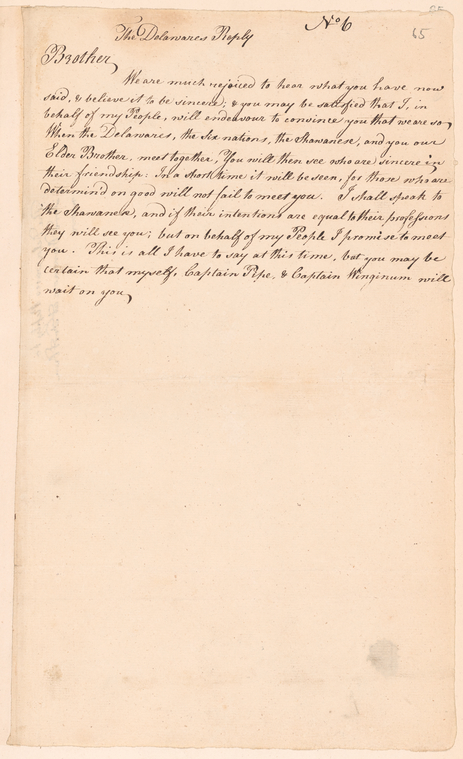 The Delawares Reply
No 6
65
Brother
We are much rejoiced to hear what you have now
said, & believe it to be sincere; & you may be satisfied that I, in
behalf of my People, will endeavour to convince you that we are so.
When the Delawares, the Six nations, the Shawanese, and you our
Elder Brother, meet together, You will then see who are sincere in
their friendship: In a short time it will be seen, for those who are
determind on good will not fail to meet you. I shall speak to
the Shawanese, and if their intentions are equal to their professions
they will see you; but on behalf of my People I promise to meet
you. This is all I have to say at this time, but you may be
certain that myself, Captain Pipe, & Captain Winginum will
wait on you